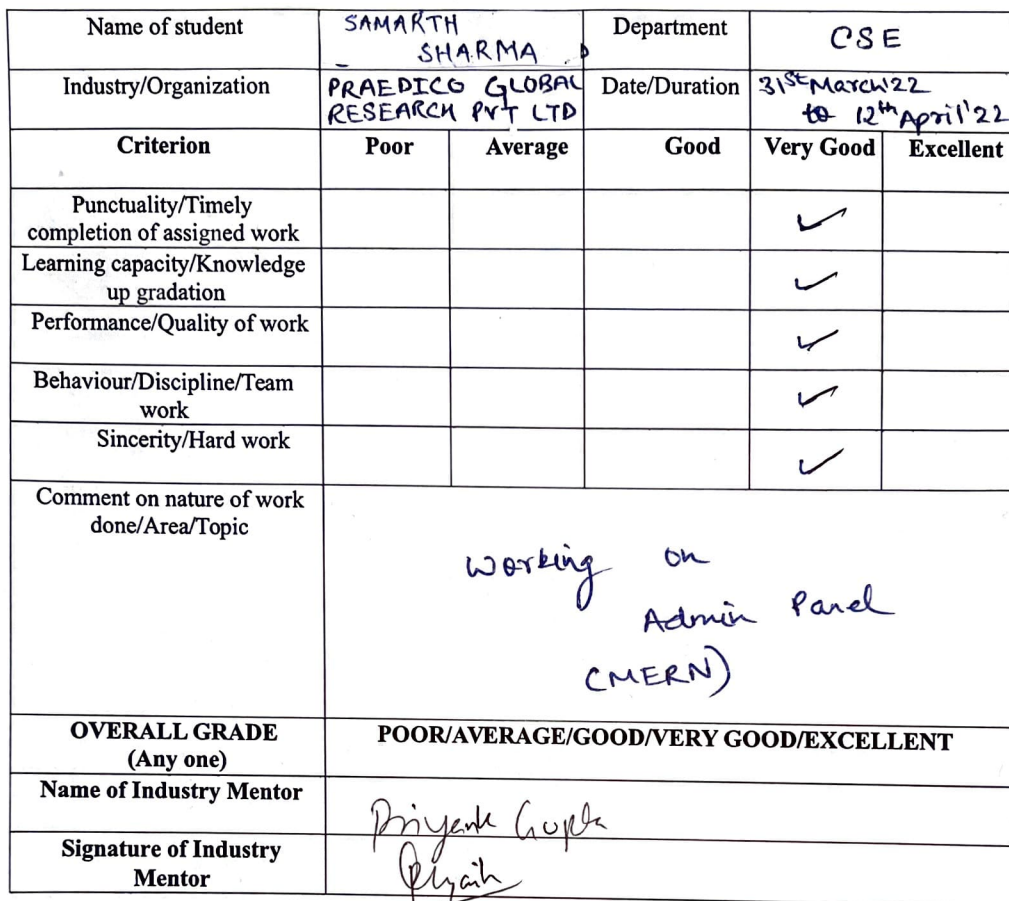 Name of student SAMARTH Department CSE
SHARMA
Industry/Organization PRAEDICO GLOBAL Date/Duration 31st March'22
RESEARCH PVT LTD to 12th April'22
Criterion Poor Average Good Very Good Excellent
Punctuality/Timely ✓
completion of assigned work
Learning capacity/Knowledge ✓
up gradation
Performance/Quality of work ✓
Behaviour/Discipline/Team ✓
work
Sincerity/Hard work ✓
Comment on nature of work
done/Area/Topic
Working on
Admin Panel
(MERN)
OVERALL GRADE POOR/AVERAGE/GOOD/VERY GOOD/EXCELLENT
(Any one)
Name of Industry Mentor
Priyank Gupta
Signature of Industry
Mentor